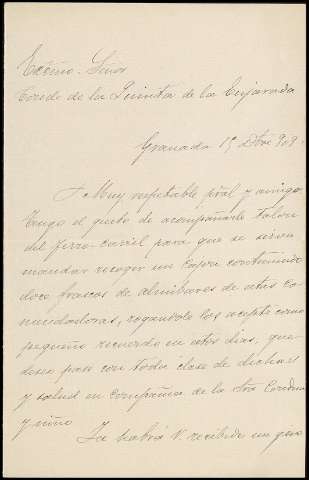 Excmo. Señor
Conde de la Quinta de la Enjarada
Granada 19 Dbre 909.
Muy respetable pral y amigo:
Tengo el gusto de acompañarle talon
del ferro-carril para que se sirva
mandar recoger un cajon conteniendo
doce frascos de almibares de estas co-
mendadoras, rogandole los acepte como
pequeño recuerdo en estos dias, que
deseo pase con toda clase de dichas
y salud en compañia de la Sra Condesa
y niño
Ya habrá V. recibido un